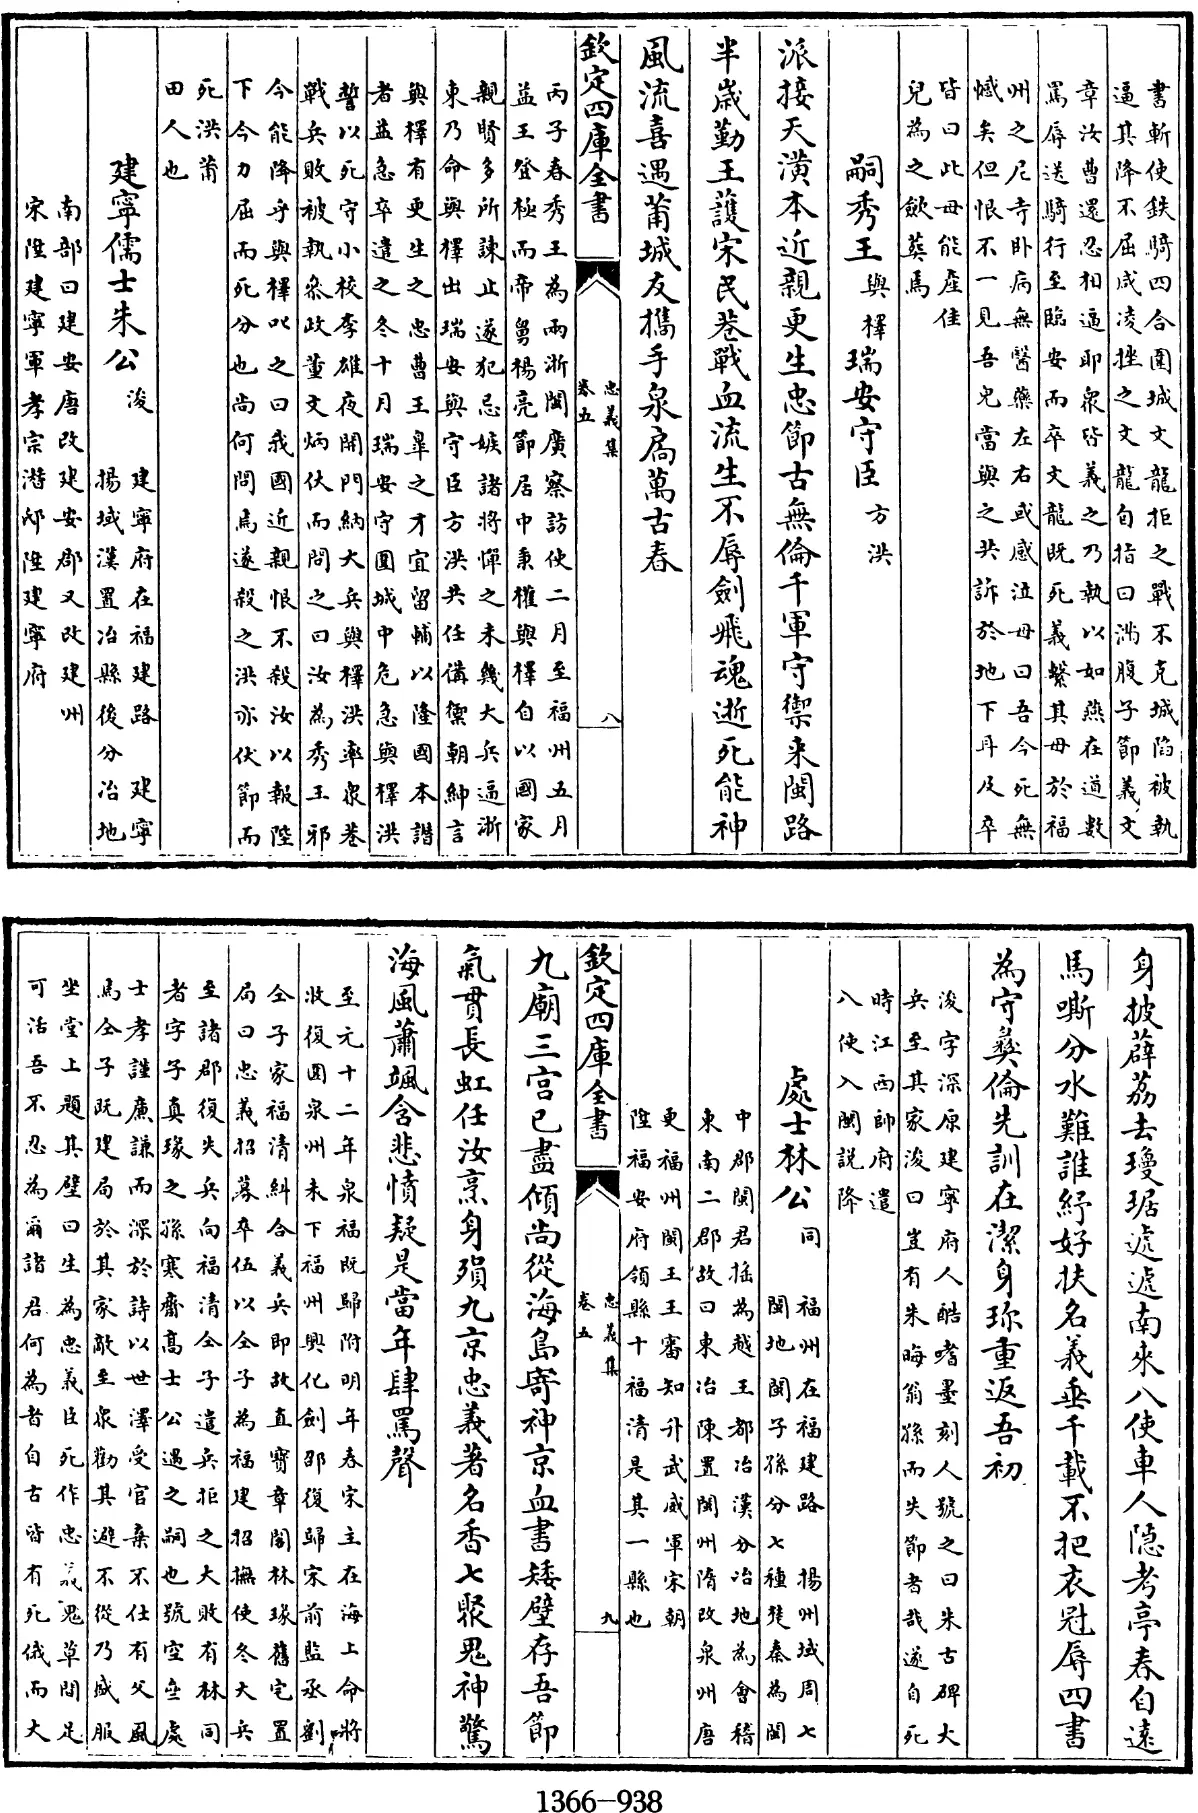 書斬使鉄騎四合圍城文龍拒之戰不克城陷被執
逼其降不屈咸凌挫之文龍自指曰滿腹子節義文
章汝曹還忍相逼耶衆皆義之乃執以如燕在道數
罵辱送騎行至臨安而卒文龍既死義繫其母於福
州之尼寺卧病無醫藥左右或感泣母曰吾今死無
憾矣但恨不一見吾兒當與之共訴於地下耳及卒
皆曰此母能產佳
兒為之歛葬焉
嗣秀王 與檡 瑞安守臣 方洪
派接天潢本近親更生忠節古無倫千軍守禦来閩路
半歲勤王護宋民巷戰血流生不辱劍飛魂逝死能神
風流喜遇莆城友攜手泉扄萬古春
欽定四庫全書
忠義集
卷五
八
丙子春秀王為兩浙閩廣察訪使二月至福州五月
益王登極而帝舅楊亮節居中秉權與檡自以國家
親賢多所諫止遂犯忌嫉諸將憚之未幾大兵逼浙
東乃命與檡出瑞安與守臣方洪共任備禦朝紳言
與檡有更生之忠曹王臯之才宜留輔以隆國本譖
者益急卒遣之冬十月瑞安守圍城中危急與檡洪
誓以死守小校李雄夜開門納大兵與檡洪率衆巷
戰兵敗被執叅政董文炳伏而問之曰汝為秀王邪
今能降乎與檡叱之曰我國近親恨不殺汝以報陛
下今力屈而死分也尚何問焉遂殺之洪亦伏節而
死洪莆
田人也
建寧儒士朱公 浚
建寧府在福建路 建寧
揚域漢置冶縣後分冶地
南部曰建安唐改建安郡又改建州
宋陞建寧軍孝宗潛邸陞建寧府
身披薜荔去瓊琚遞遞南來八使車人隱考亭春自遠
馬嘶分水難誰紓好扶名義垂千載不把衣冠辱四書
為守彝倫先訓在潔身珎重返吾初
浚字深原建寧府人酷嗜墨刻人號之曰朱古碑大
兵至其家浚曰豈有朱晦翁孫而失節者哉遂自死
時江西帥府遣
八使入閩説降
處士林公 同
福州在福建路 揚州域周七
閩地閩子孫分七種楚秦為閩
中郡閩君揺為越王都冶漢分冶地為會稽
東南二郡故曰東冶陳置閩州隋改泉州唐
更福州閩王王審知升武威軍宋朝
陞福安府領縣十福清是其一縣也
欽定四庫全書
忠義集
卷五
九
九廟三宫已盡傾尚從海島寄神京血書矮壁存吾節
氣貫長虹任汝烹身殞九京忠義著名香七聚鬼神驚
海風蕭颯含悲憤疑是當年肆罵聲
至元十二年泉福既歸附明年春宋主在海上命將
收復圍泉州未下福州興化劍邵復歸宋前監丞劉
仝子家福清糾合義兵即故直寶章閣林瑑舊宅置
局曰忠義招募卒伍以仝子為福建招撫使冬大兵
至諸郡復失兵向福清仝子遣兵拒之大敗有林同
者字子真瑑之孫寒齋髙士公遇之嗣也號空齋處
士孝謹廉謙而深於詩以世澤受官棄不仕有父風
焉仝子既建局於其家敵至衆勸其避不從乃盛服
坐堂上題其壁曰生為忠義臣死作忠義鬼草間足
可活吾不忍為爾諸君何為者自古皆有死俄而大
1366-938